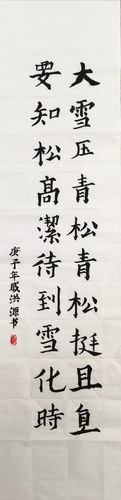 大雪压青松青松挺且直
要知松高潔待到雪化時
庚子年戚洪源书